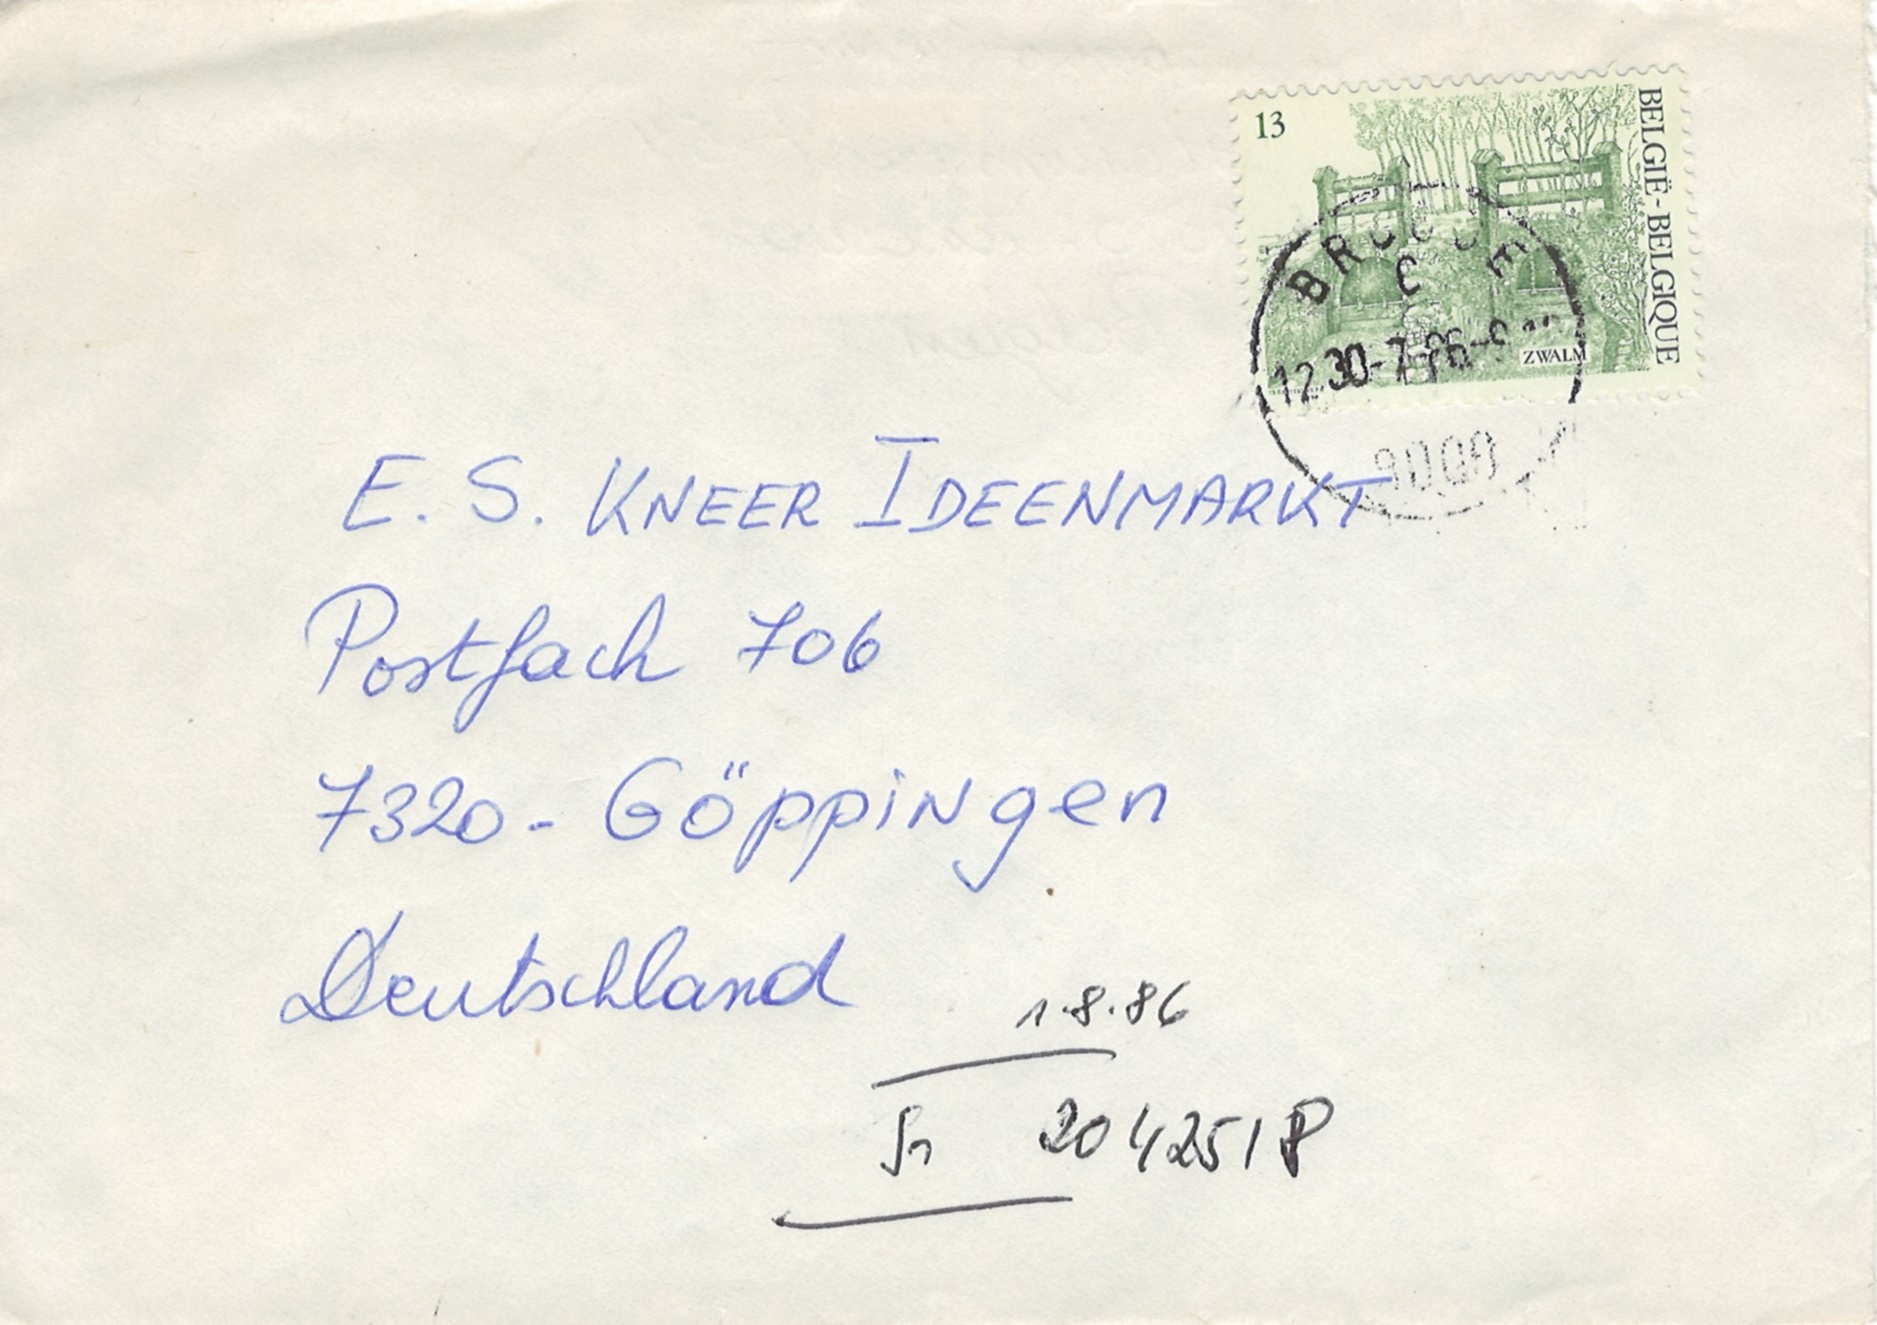 13
BELGIË - BELGIQUE
ZWALM
BRUGGE
C
12 30-7-86-
E. S. KNEER IDEENMARKT
Postfach 706
7320 - Göppingen
Deutschland
1.8.86
204251P